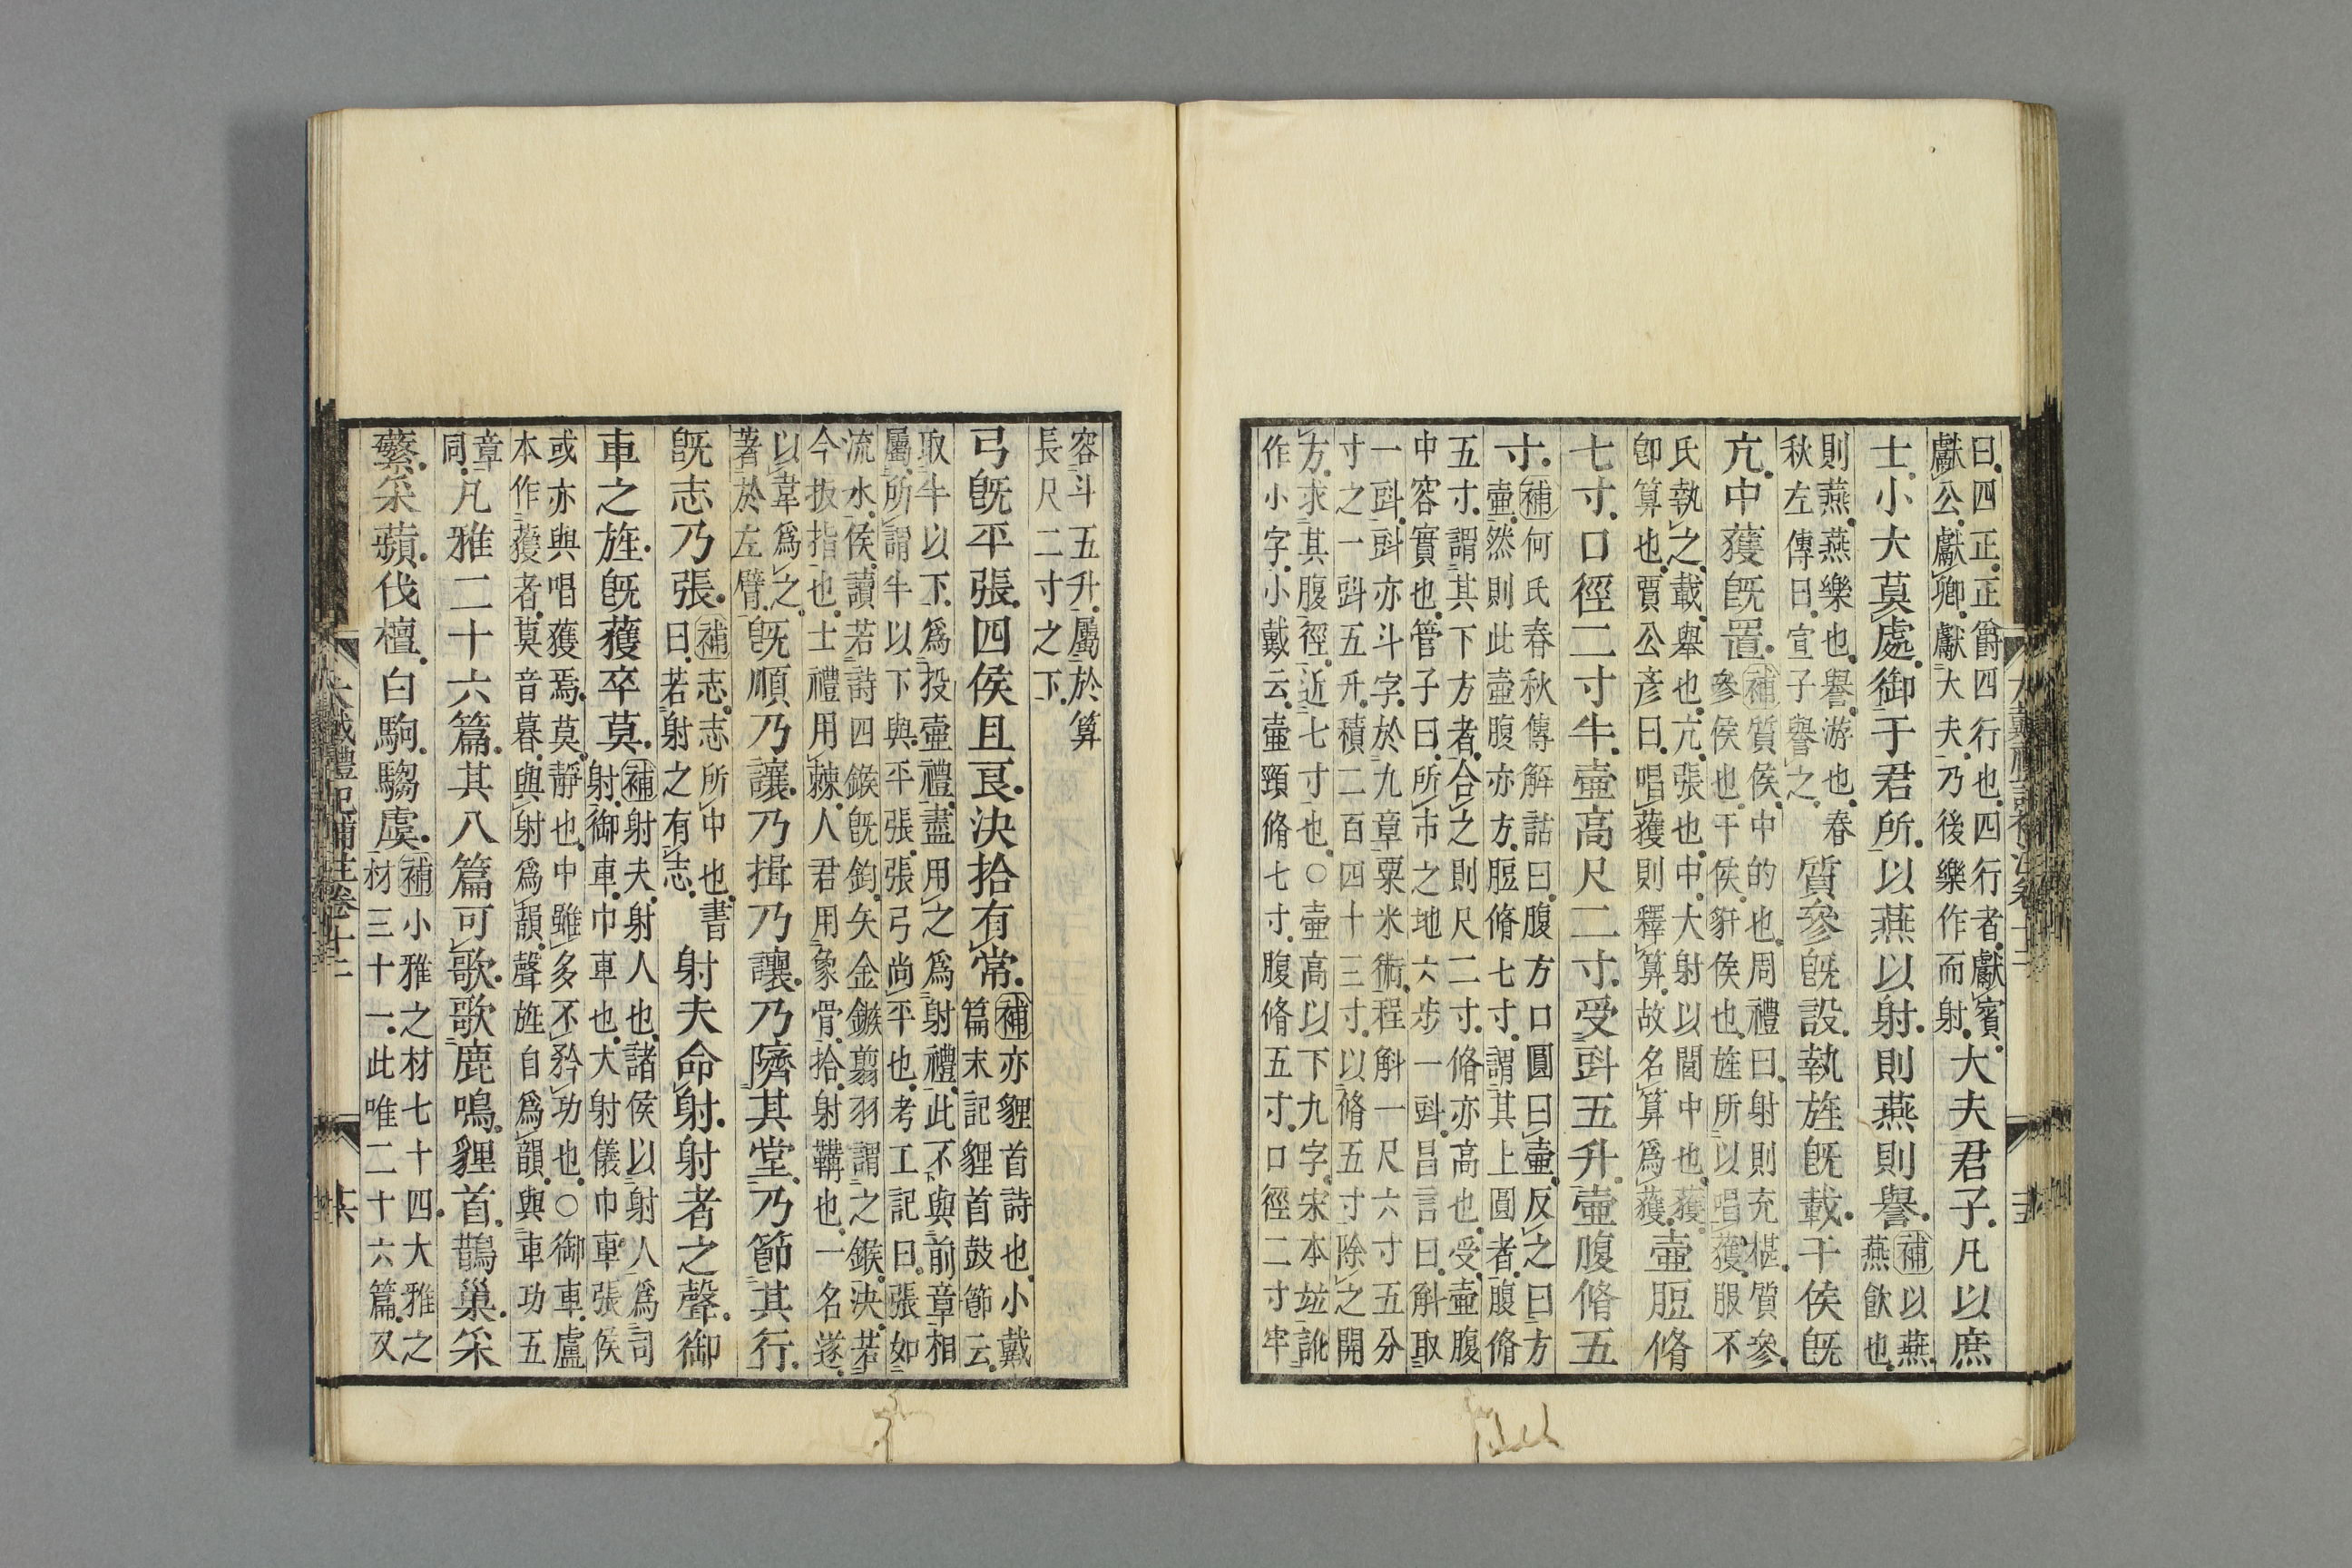 曰四正正爵四行也四行者獻賓
獻公獻卿獻大夫乃後樂作而射
大夫君子凡以庶
士小大莫處御于君所以燕以射則燕則譽
補以燕
燕飮也
則燕燕樂也譽游也春
秋左傳曰宣子譽之
質參旣設執旌旣載干侯旣
亢中獲旣置
補質侯中的也周禮曰射則充椹質參
參侯也干侯豻侯也旌所以唱獲服不
氏執之載舉也亢張也中大射以閭中也獲
卽算也賈公彦曰唱獲則釋算故名算爲獲
壷脰脩
七寸口徑二寸半壷高尺二寸受㪷五升壷腹脩五
寸
補何氏春秋傳解詁曰腹方口圓曰壷反之曰方
壷然則此壷腹亦方脰脩七寸謂其上圓者腹脩
五寸謂其下方者合之則尺二寸脩亦高也受壷腹
中容實也管子曰所市之地六步一㪷昌言曰斛取
一㪷㪷亦斗字於九章粟米術程斛一尺六寸五分
寸之一㪷五升積二百四十三寸以脩五寸除之開
方求其腹徑近七寸也○壷高以下九字宋本竝訛
作小字小戴云壷頸脩七寸腹脩五寸口徑二寸半
大戴禮記補注卷十二
容斗五升屬於算
長尺二寸之下
弓旣平張四侯且良決拾有常
補亦貍首詩也小戴
篇末記貍首鼓節云
取半以下爲投壷禮盡用之爲射禮此不與前章相
屬所謂半以下與平張張弓尚平也考工記曰張如
流水侯讀若詩四鍭旣鈞矢金鏃翦羽謂之鍭決若
今扳指也士禮用棘人君用象骨拾射韝也一名遂
以韋爲之
著於左臂
旣順乃讓乃揖乃讓乃隮其堂乃節其行
旣志乃張
補志志所中也書
曰若射之有志
射夫命射射者之聲御
車之旌旣獲卒莫
補射夫射人也諸侯以射人爲司
射御車巾車也大射儀巾車張侯
或亦與唱獲焉莫靜也中雖多不矜功也○御車盧
本作獲者莫音暮與射爲韻聲旌自爲韻與車功五
章
同
凡雅二十六篇其八篇可歌歌鹿鳴貍首鵲巢采
蘩采蘋伐檀白駒騶虞
補小雅之材七十四大雅之
材三十一此唯二十六篇又
大戴禮記補注卷十二